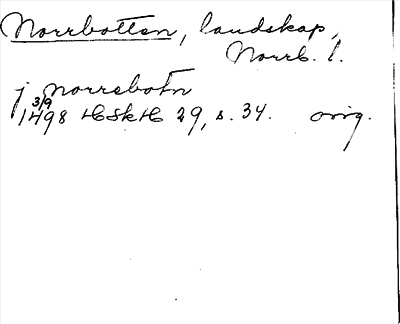 Norrbotten, landskap,
Norrb. l.
j norrebotn
3/9
1498 HSkH 29, s. 34. orig.